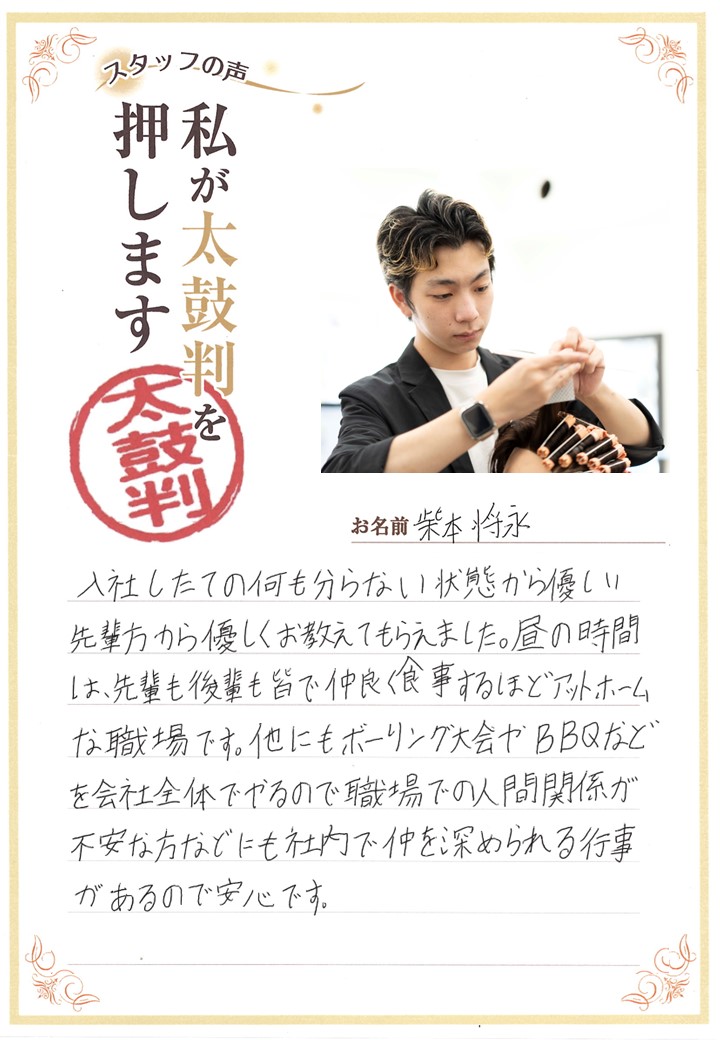 スタッフの声
私が太鼓判を
押します
太鼓判
お名前 柴本 将永
入社したての何も分らない状態から優しい
先輩方から優しくお教えてもらえました。昼の時間
は、先輩も後輩も皆で仲良く食事するほどアットホーム
な職場です。他にもボーリング大会やBBQなど
を会社全体でやるので職場での人間関係が
不安な方などにも社内で仲を深められる行事
があるので安心です。